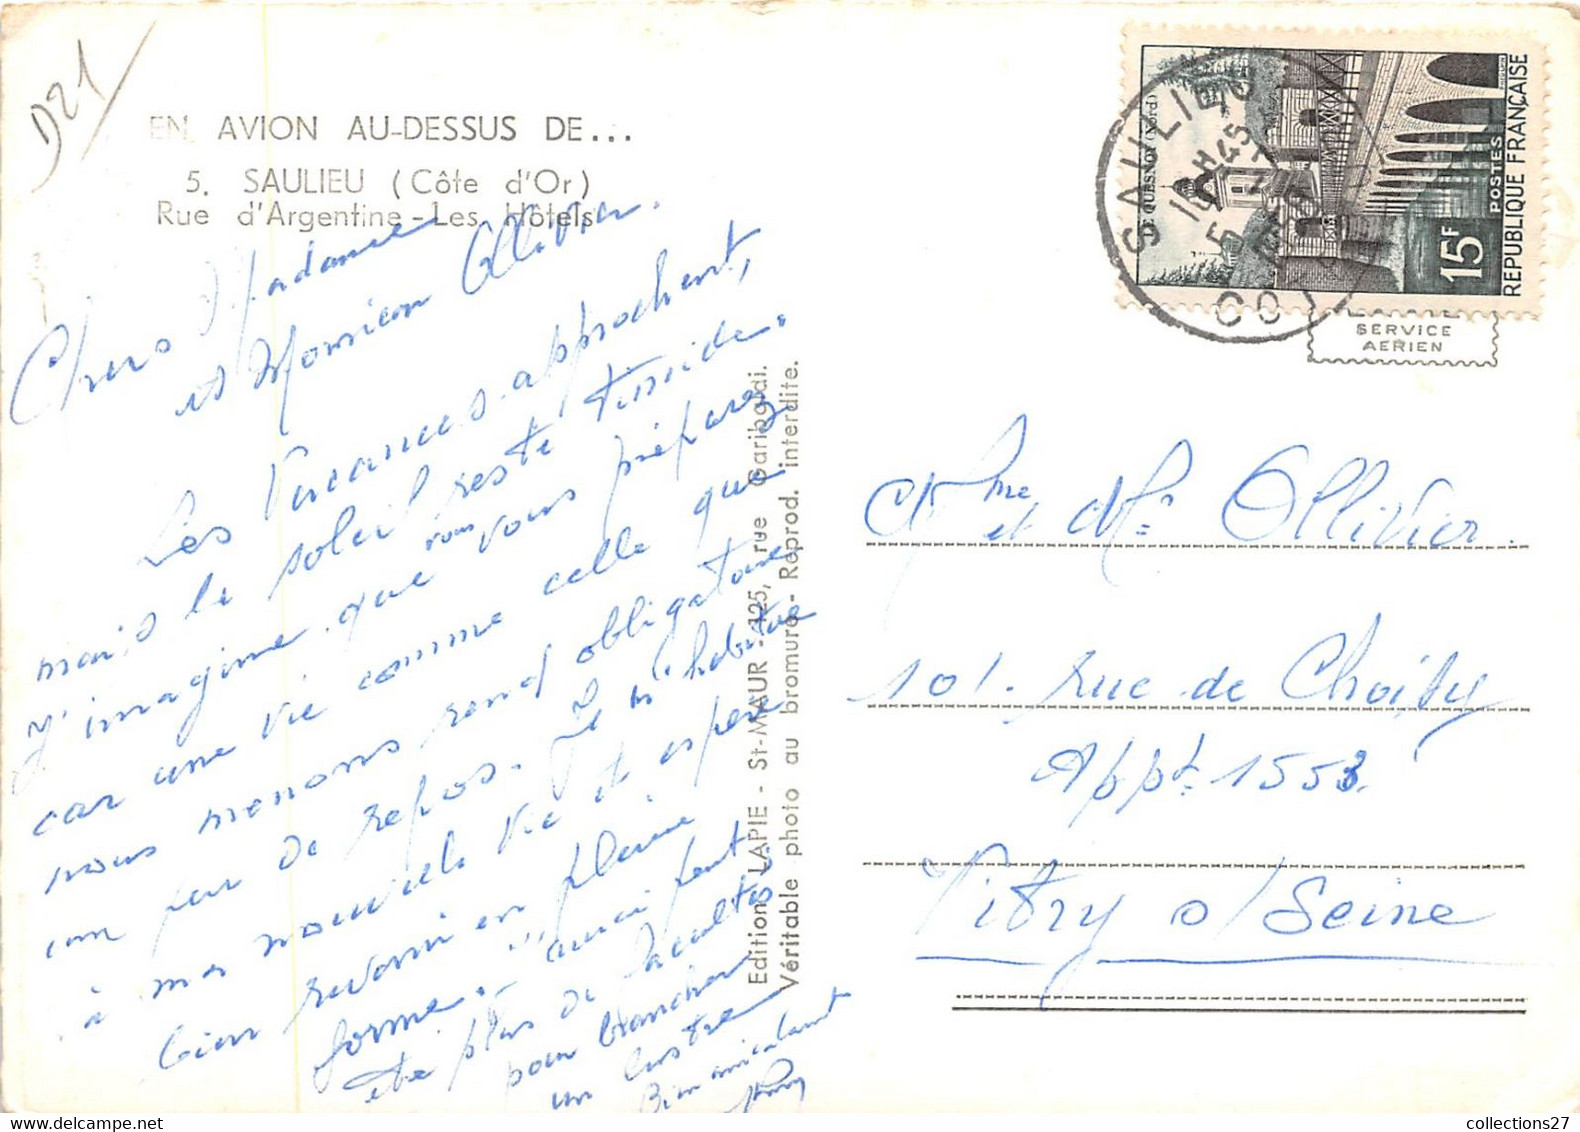 D21
EN AVION AU-DESSUS DE...
5. SAULIEU (Côte d'Or)
Rue d'Argentine - Les Hôtels
Chers Madame
et Monsieur Ollivier.
Les Vacances approchent,
mais le soleil reste timide.
J'imagine que vous vous préparez
car une vie comme celle que
nous menons rend obligatoire
un peu de repos. Je m'habitue
à ma nouvelle vie et espère
bien revenir en pleine
forme. J'aurai peut
être plus de facultés
pour brancher
un lustre
Bien amicalement
Editions LAPIE - St-MAUR - 125, rue Garibaldi.
Véritable photo au bromure - Reprod. interdite.
LE QUESNOY (Nord)
15F
POSTES
REPUBLIQUE FRANÇAISE
SAULIEU
COTE D'OR
18H45
SERVICE
AERIEN
Mme et Mr Ollivier.
101. rue de Choisy
Appt. 1553.
Vitry s/Seine
collections27